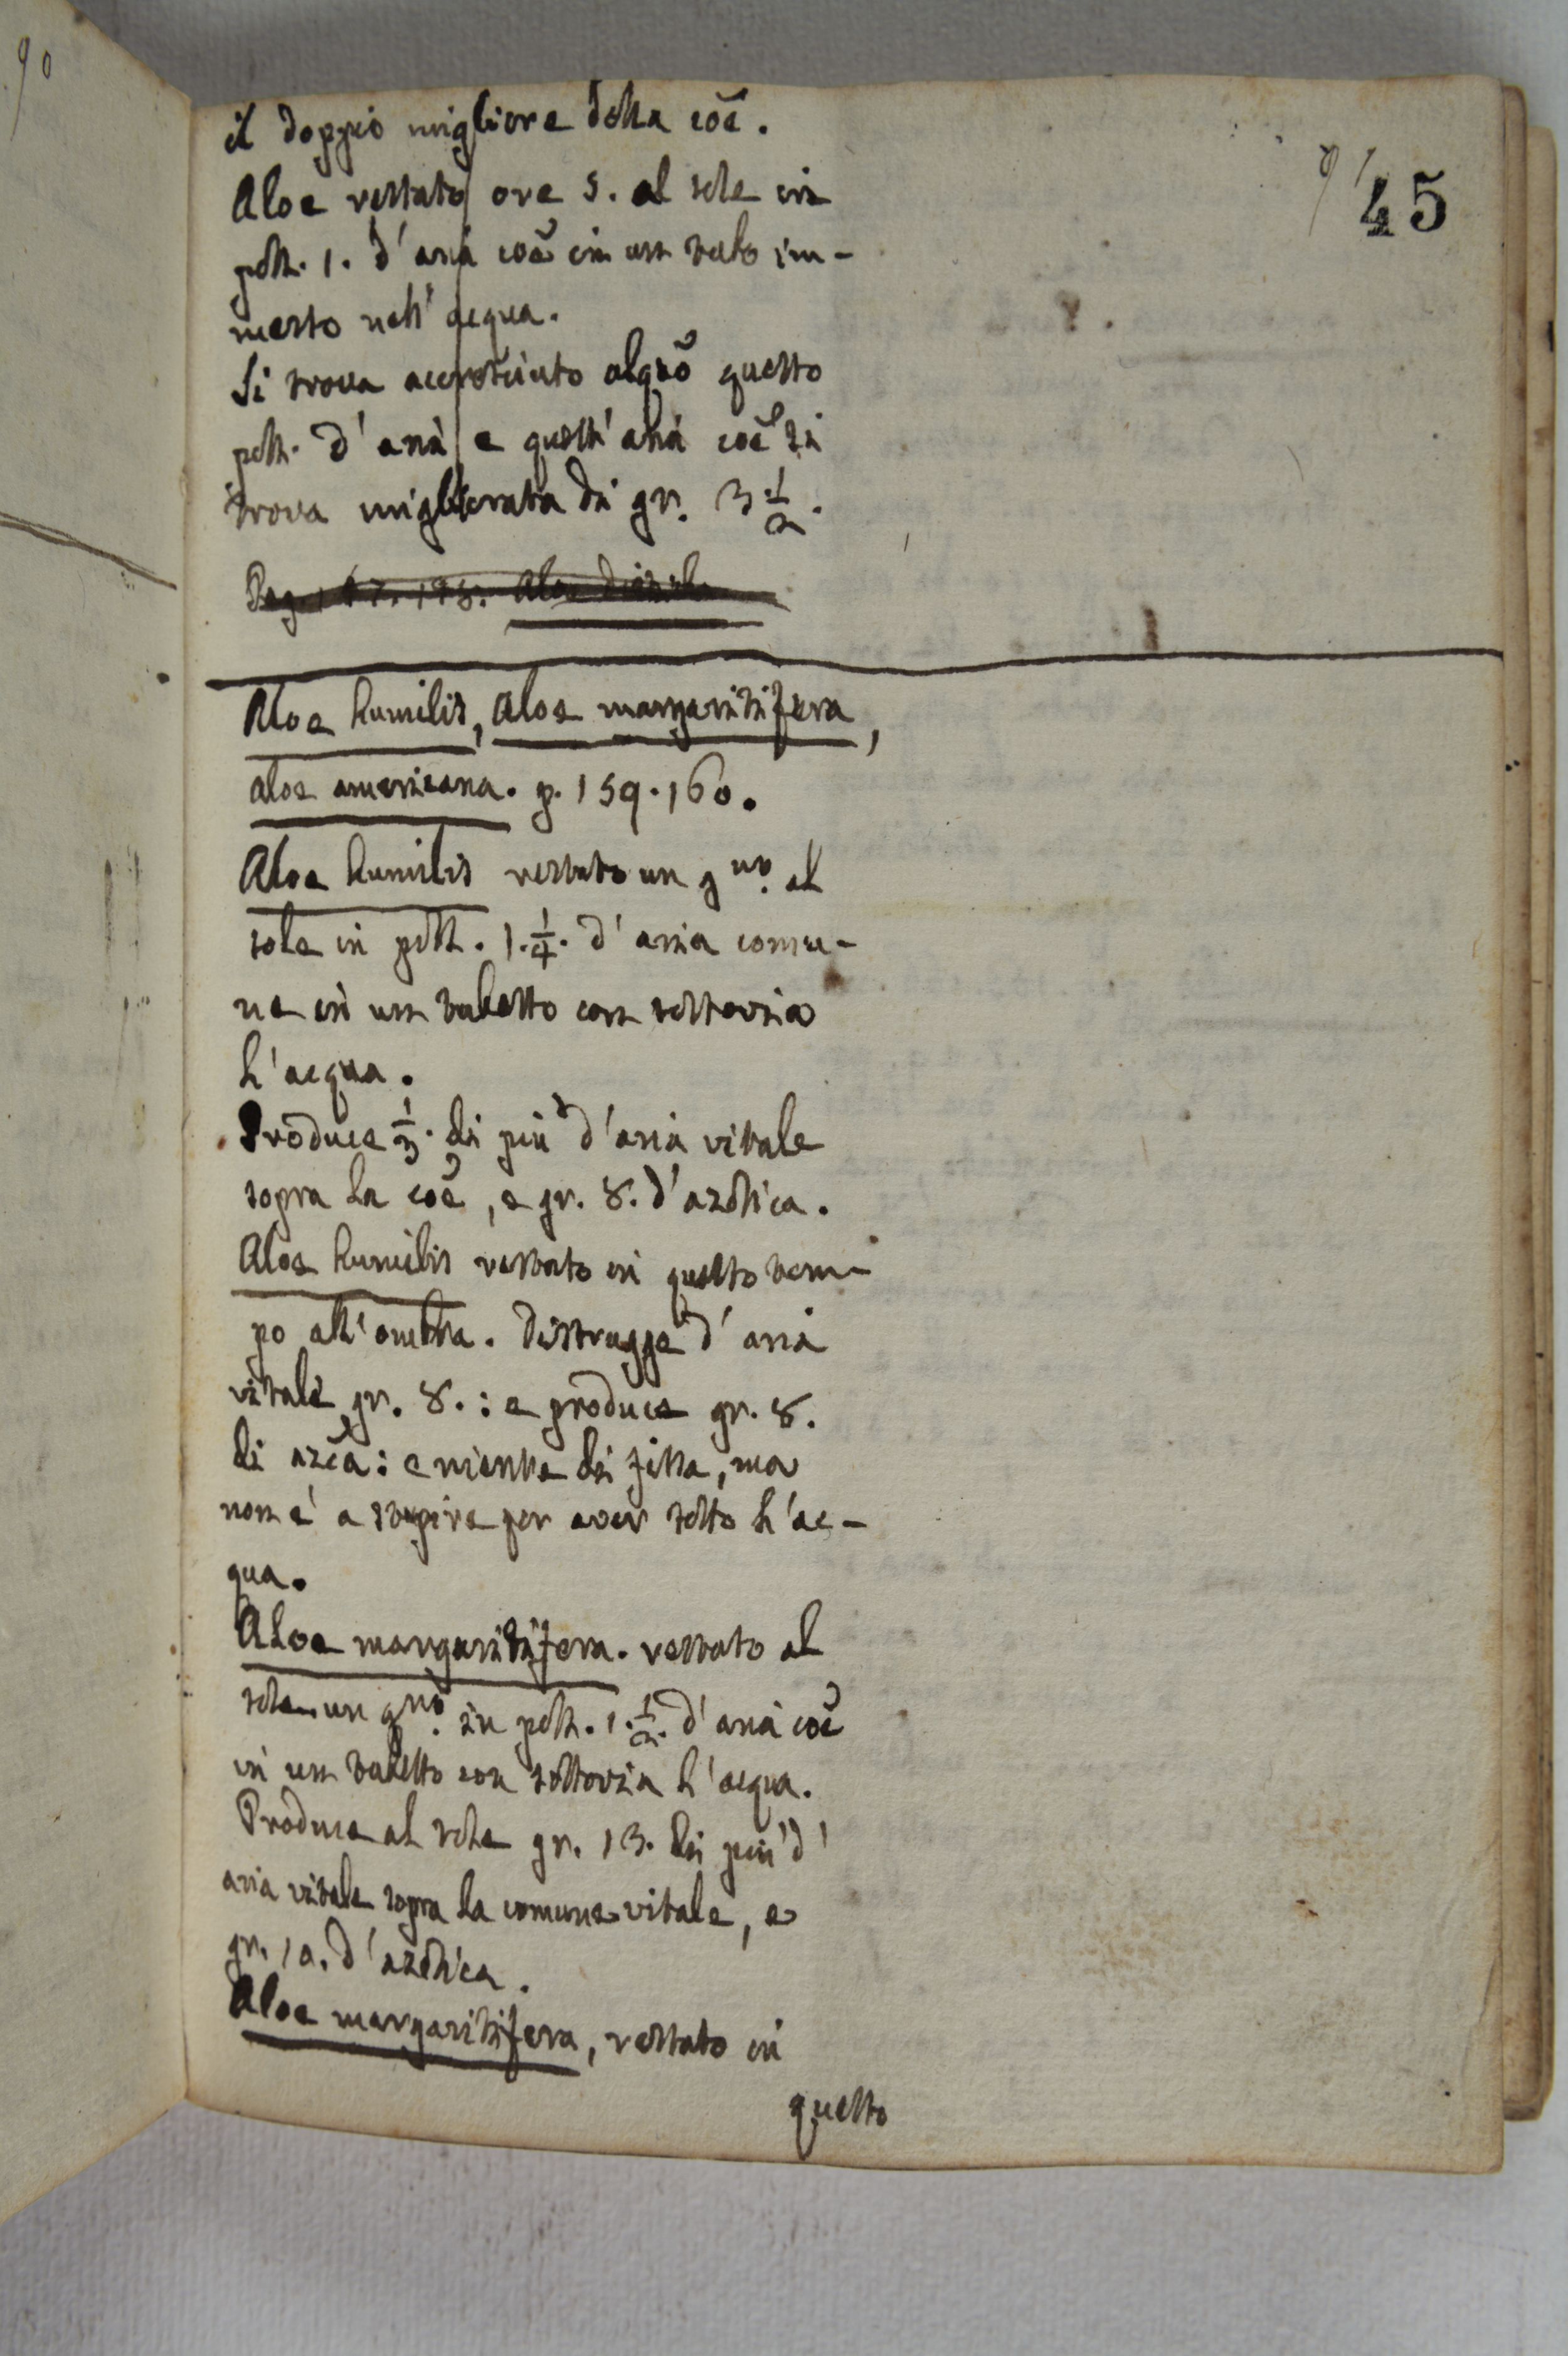 90
91
45
il doppio migliore della coē.
Aloe restato ore 5. al sole in
poll. 1. d'aria coē in un tubo im-
merso nell'acqua.
Si trova accresciuto alqto questo
poll. d'aria e quell'aria coē si
trova migliorata di gr. 3 1/2.
Pag. 147. 148. Aloe
Aloe humilis, Aloe margaritifera,
aloe americana. p. 159. 160.
Aloe humilis restato un gno. al
sole in poll. 1. 1/4. d'aria comu-
ne in un tubetto con sottovia
l'acqua.
Produce 1/3. di più d'aria vitale
sopra la coē, e gr. 8. d'azotica.
Aloe humilis restato in questo tem-
po all'ombra. Distrugge d'aria
vitale gr. 8. : e produce gr. 8.
di azca: e niente di fissa, ma
non è a stupire per aver sotto l'ac-
qua.
Aloe margaritifera. restato al
sole un gno. in poll. 1. 1/2. d'aria coē
in un tubetto con sottovia l'acqua.
Produce al sole gr. 13. di più d'
aria vitale sopra la comune vitale, e
gr. 10. d'azotica.
Aloe margaritifera, restato in
questo